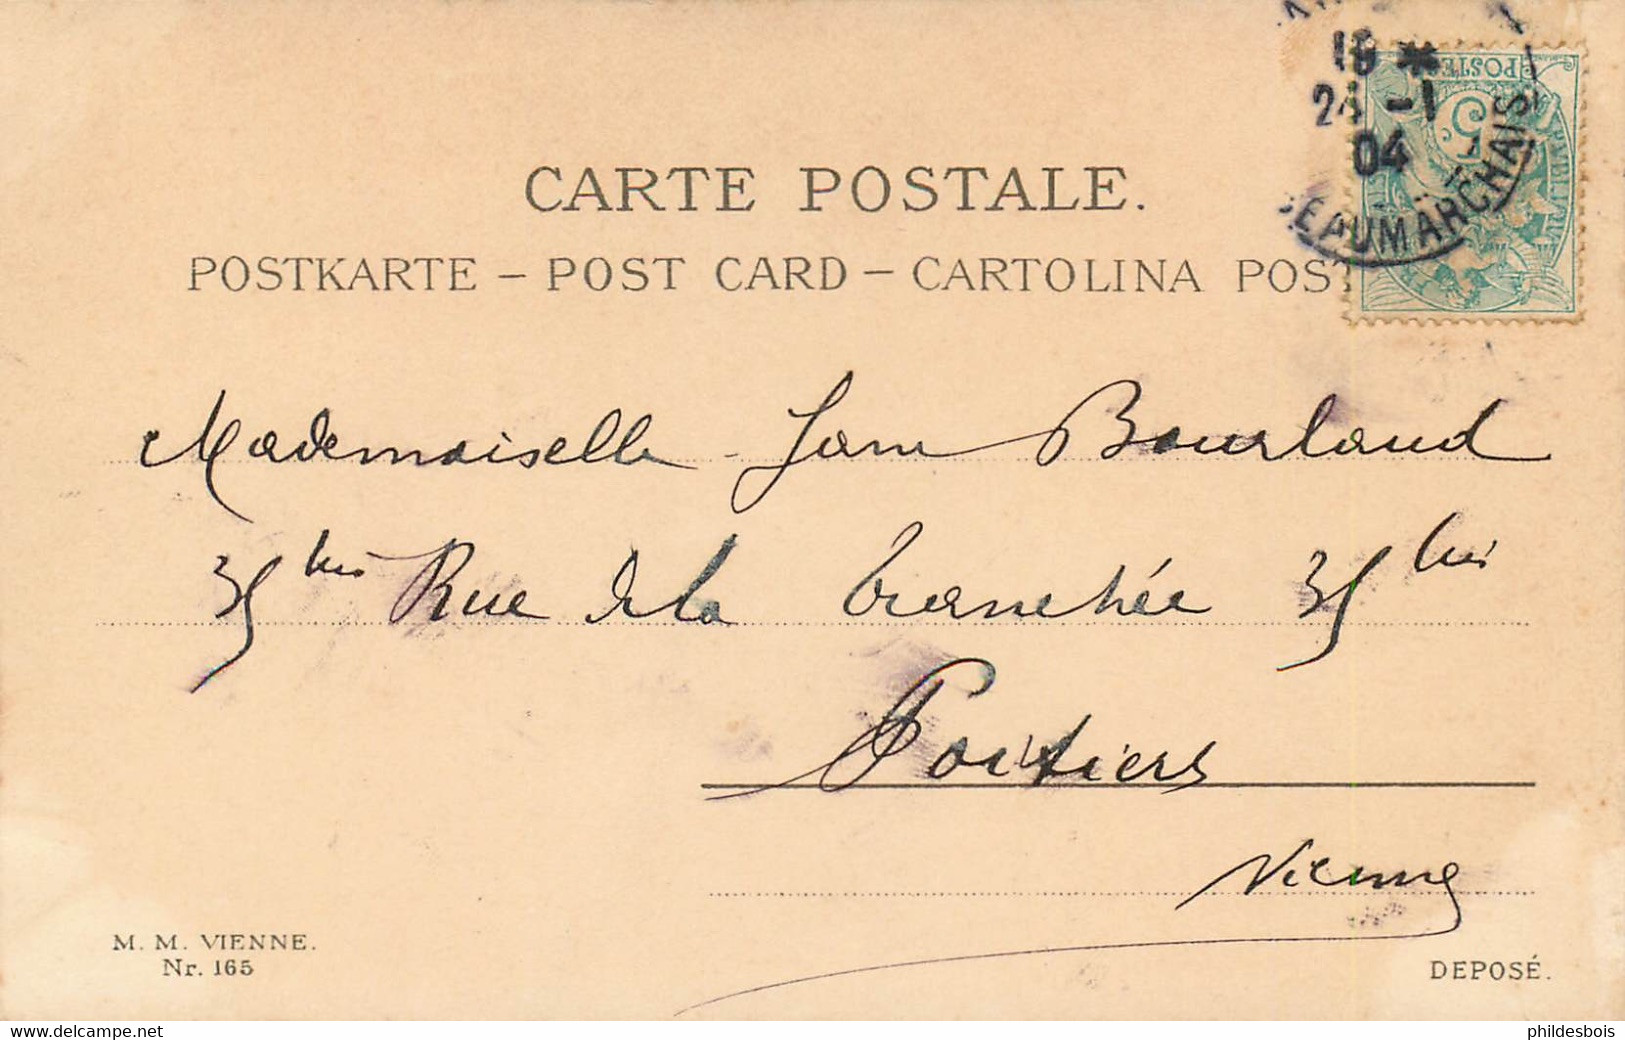 19 *
24 -1
04
BEAUMARCHAIS
POSTES
5 c
CARTE POSTALE.
POSTKARTE – POST CARD – CARTOLINA POST
Mademoiselle Jane Bourland
35 bis Rue de la Tranchée 35 bis
Poitiers
Vienne
M. M. VIENNE.
Nr. 165
DEPOSÉ.
www.delcampe.net
phildesbois